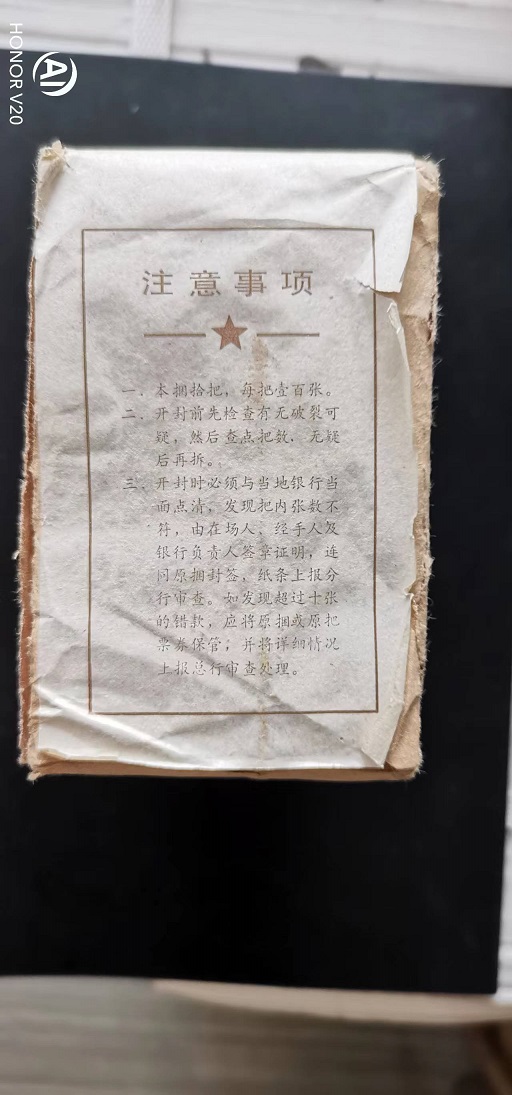 HONOR V20
AI
注意事项
一．本捆拾把，每把壹百张。
二．开封前先检查有无破裂可
疑，然后查点把数，无疑
后再拆。
三．开封时必须与当地银行当
面点清，发现把内张数不
符，由在场人、经手人及
银行负责人签章证明，连
同原捆封签，纸条上报分
行审查。如发现超过十张
的错款，应将原捆或原把
票券保管，并将详细情况
上报总行审查处理。